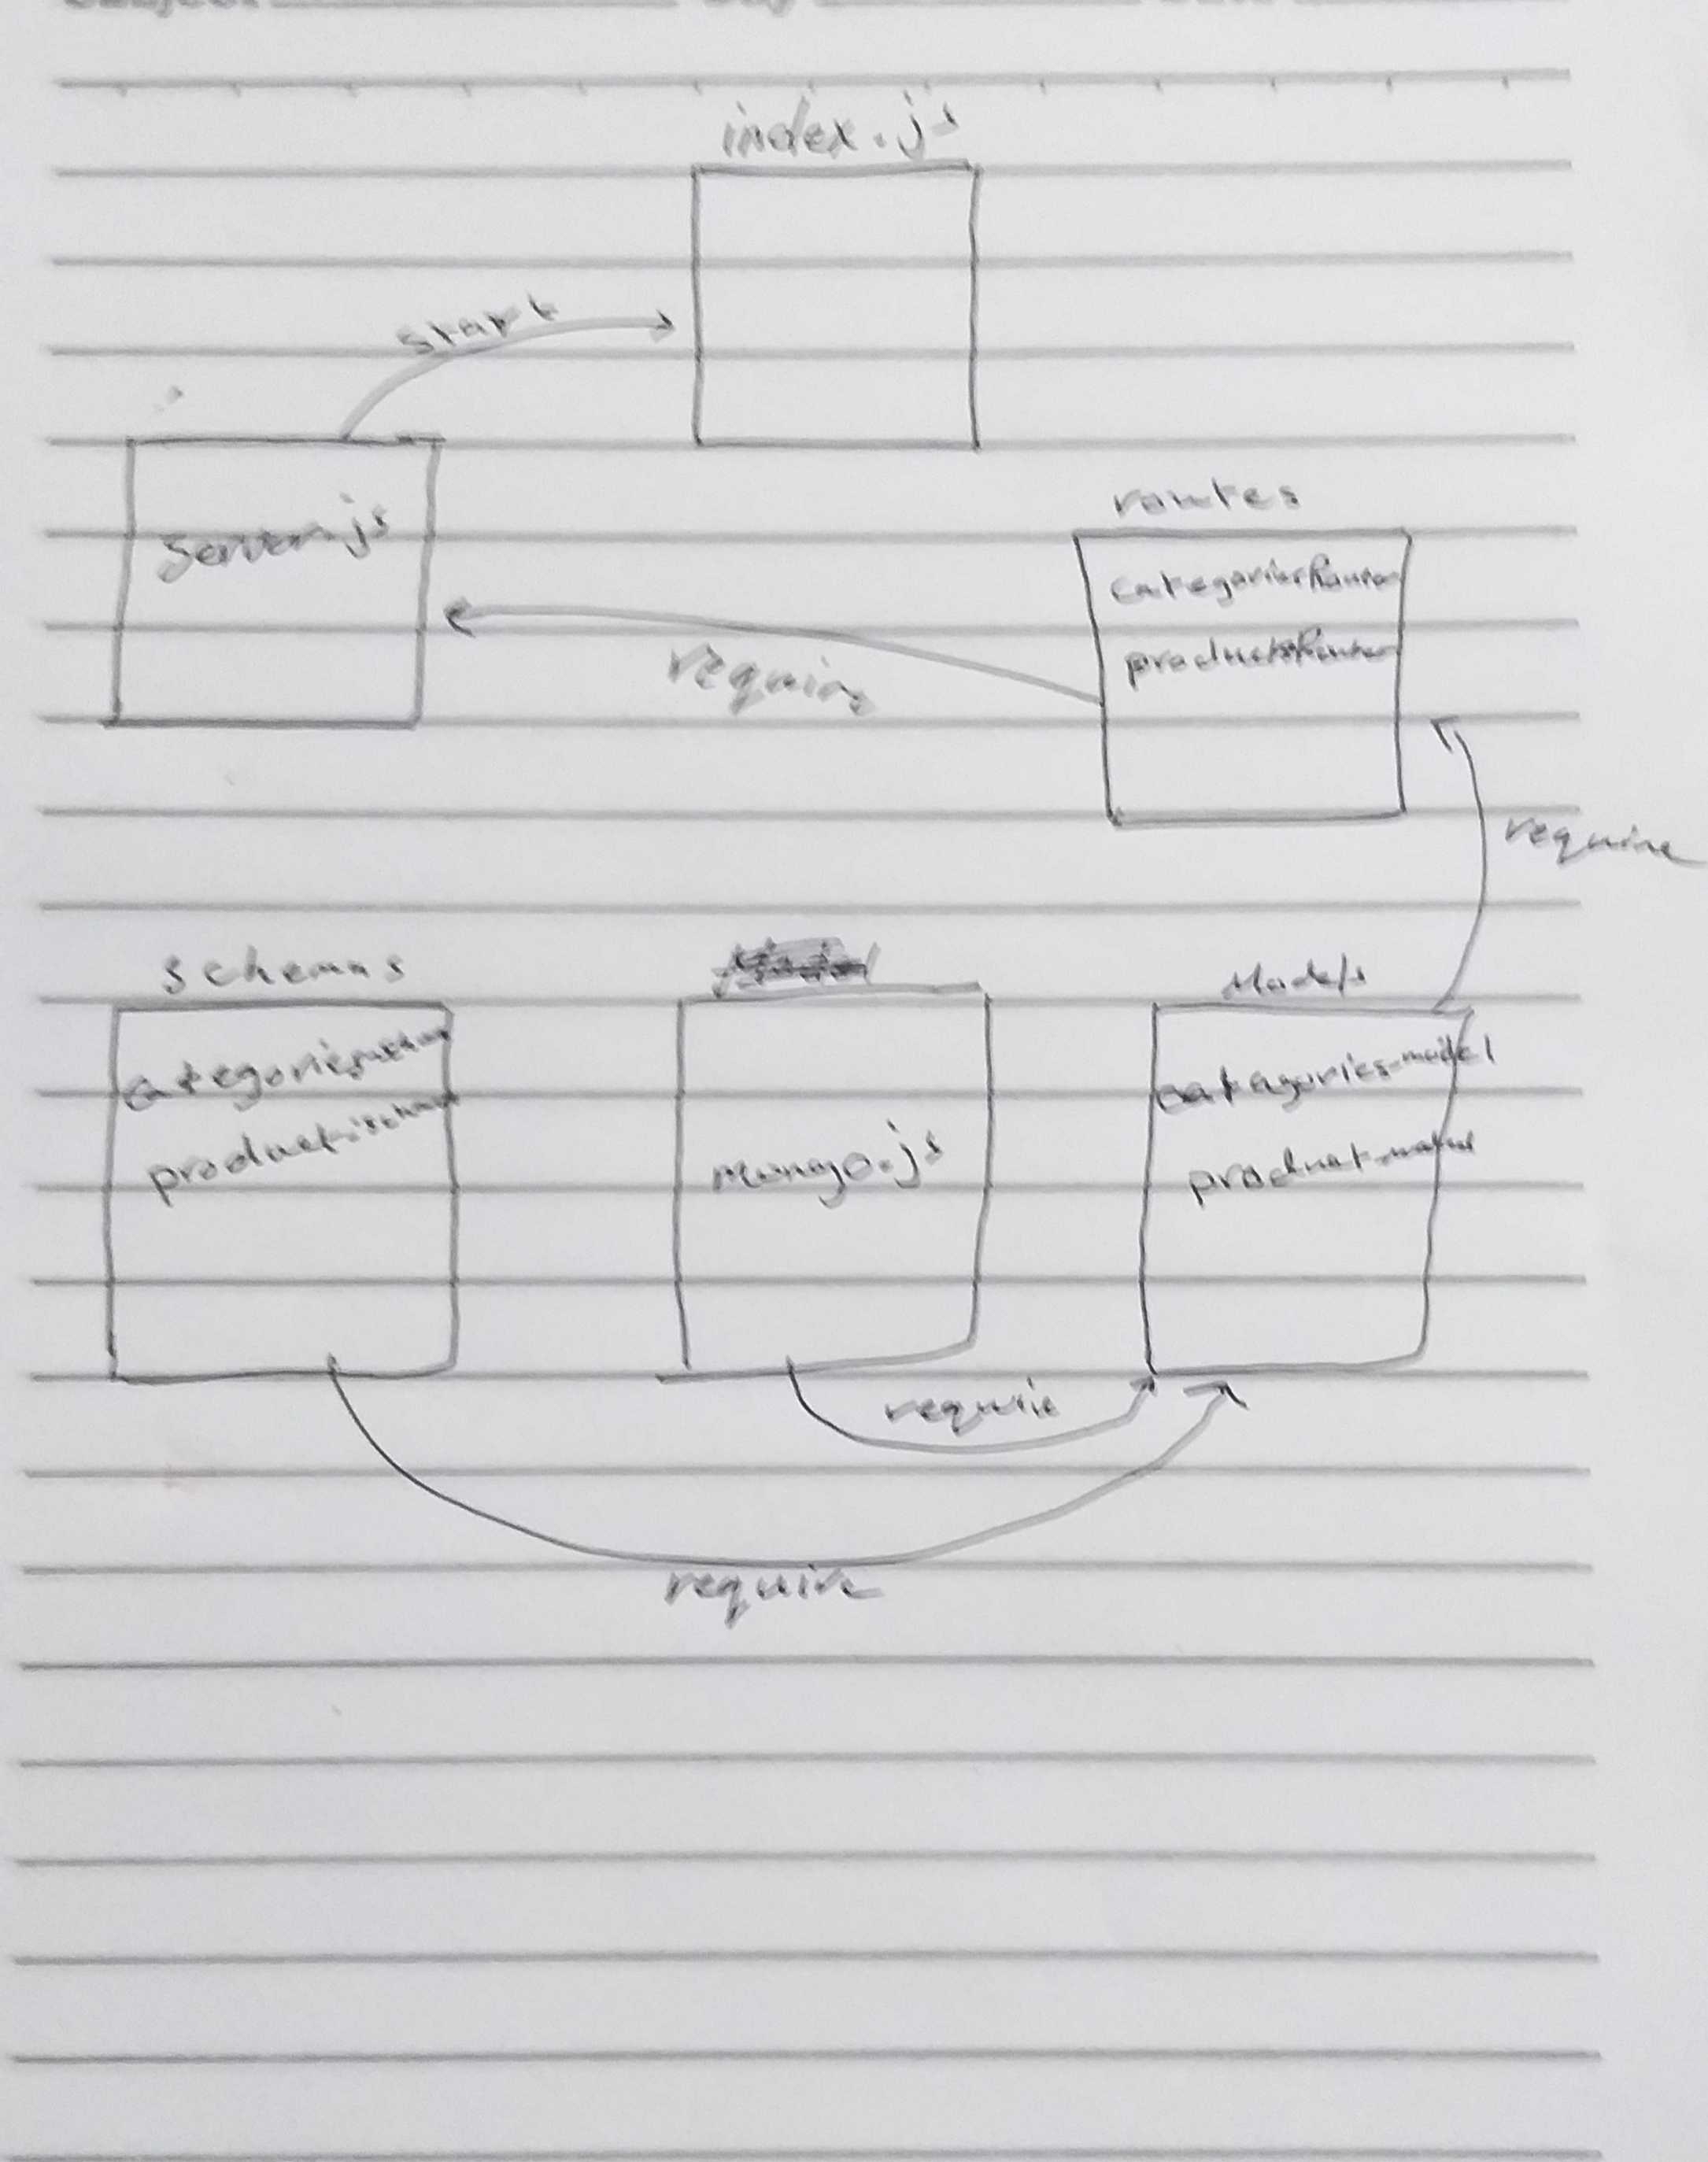 index.js
start
server.js
routes
categoriesRouter
productsRouter
require
require
schemas
categories
product
Models
categories-model
product-model
mongo.js
require
require